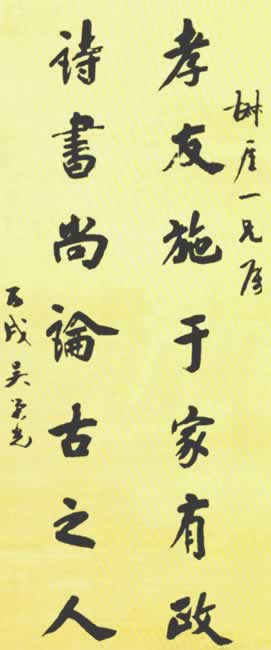 厓一兄属
孝友施于家有政
詩書尚論古之人
丙戌吴榮光